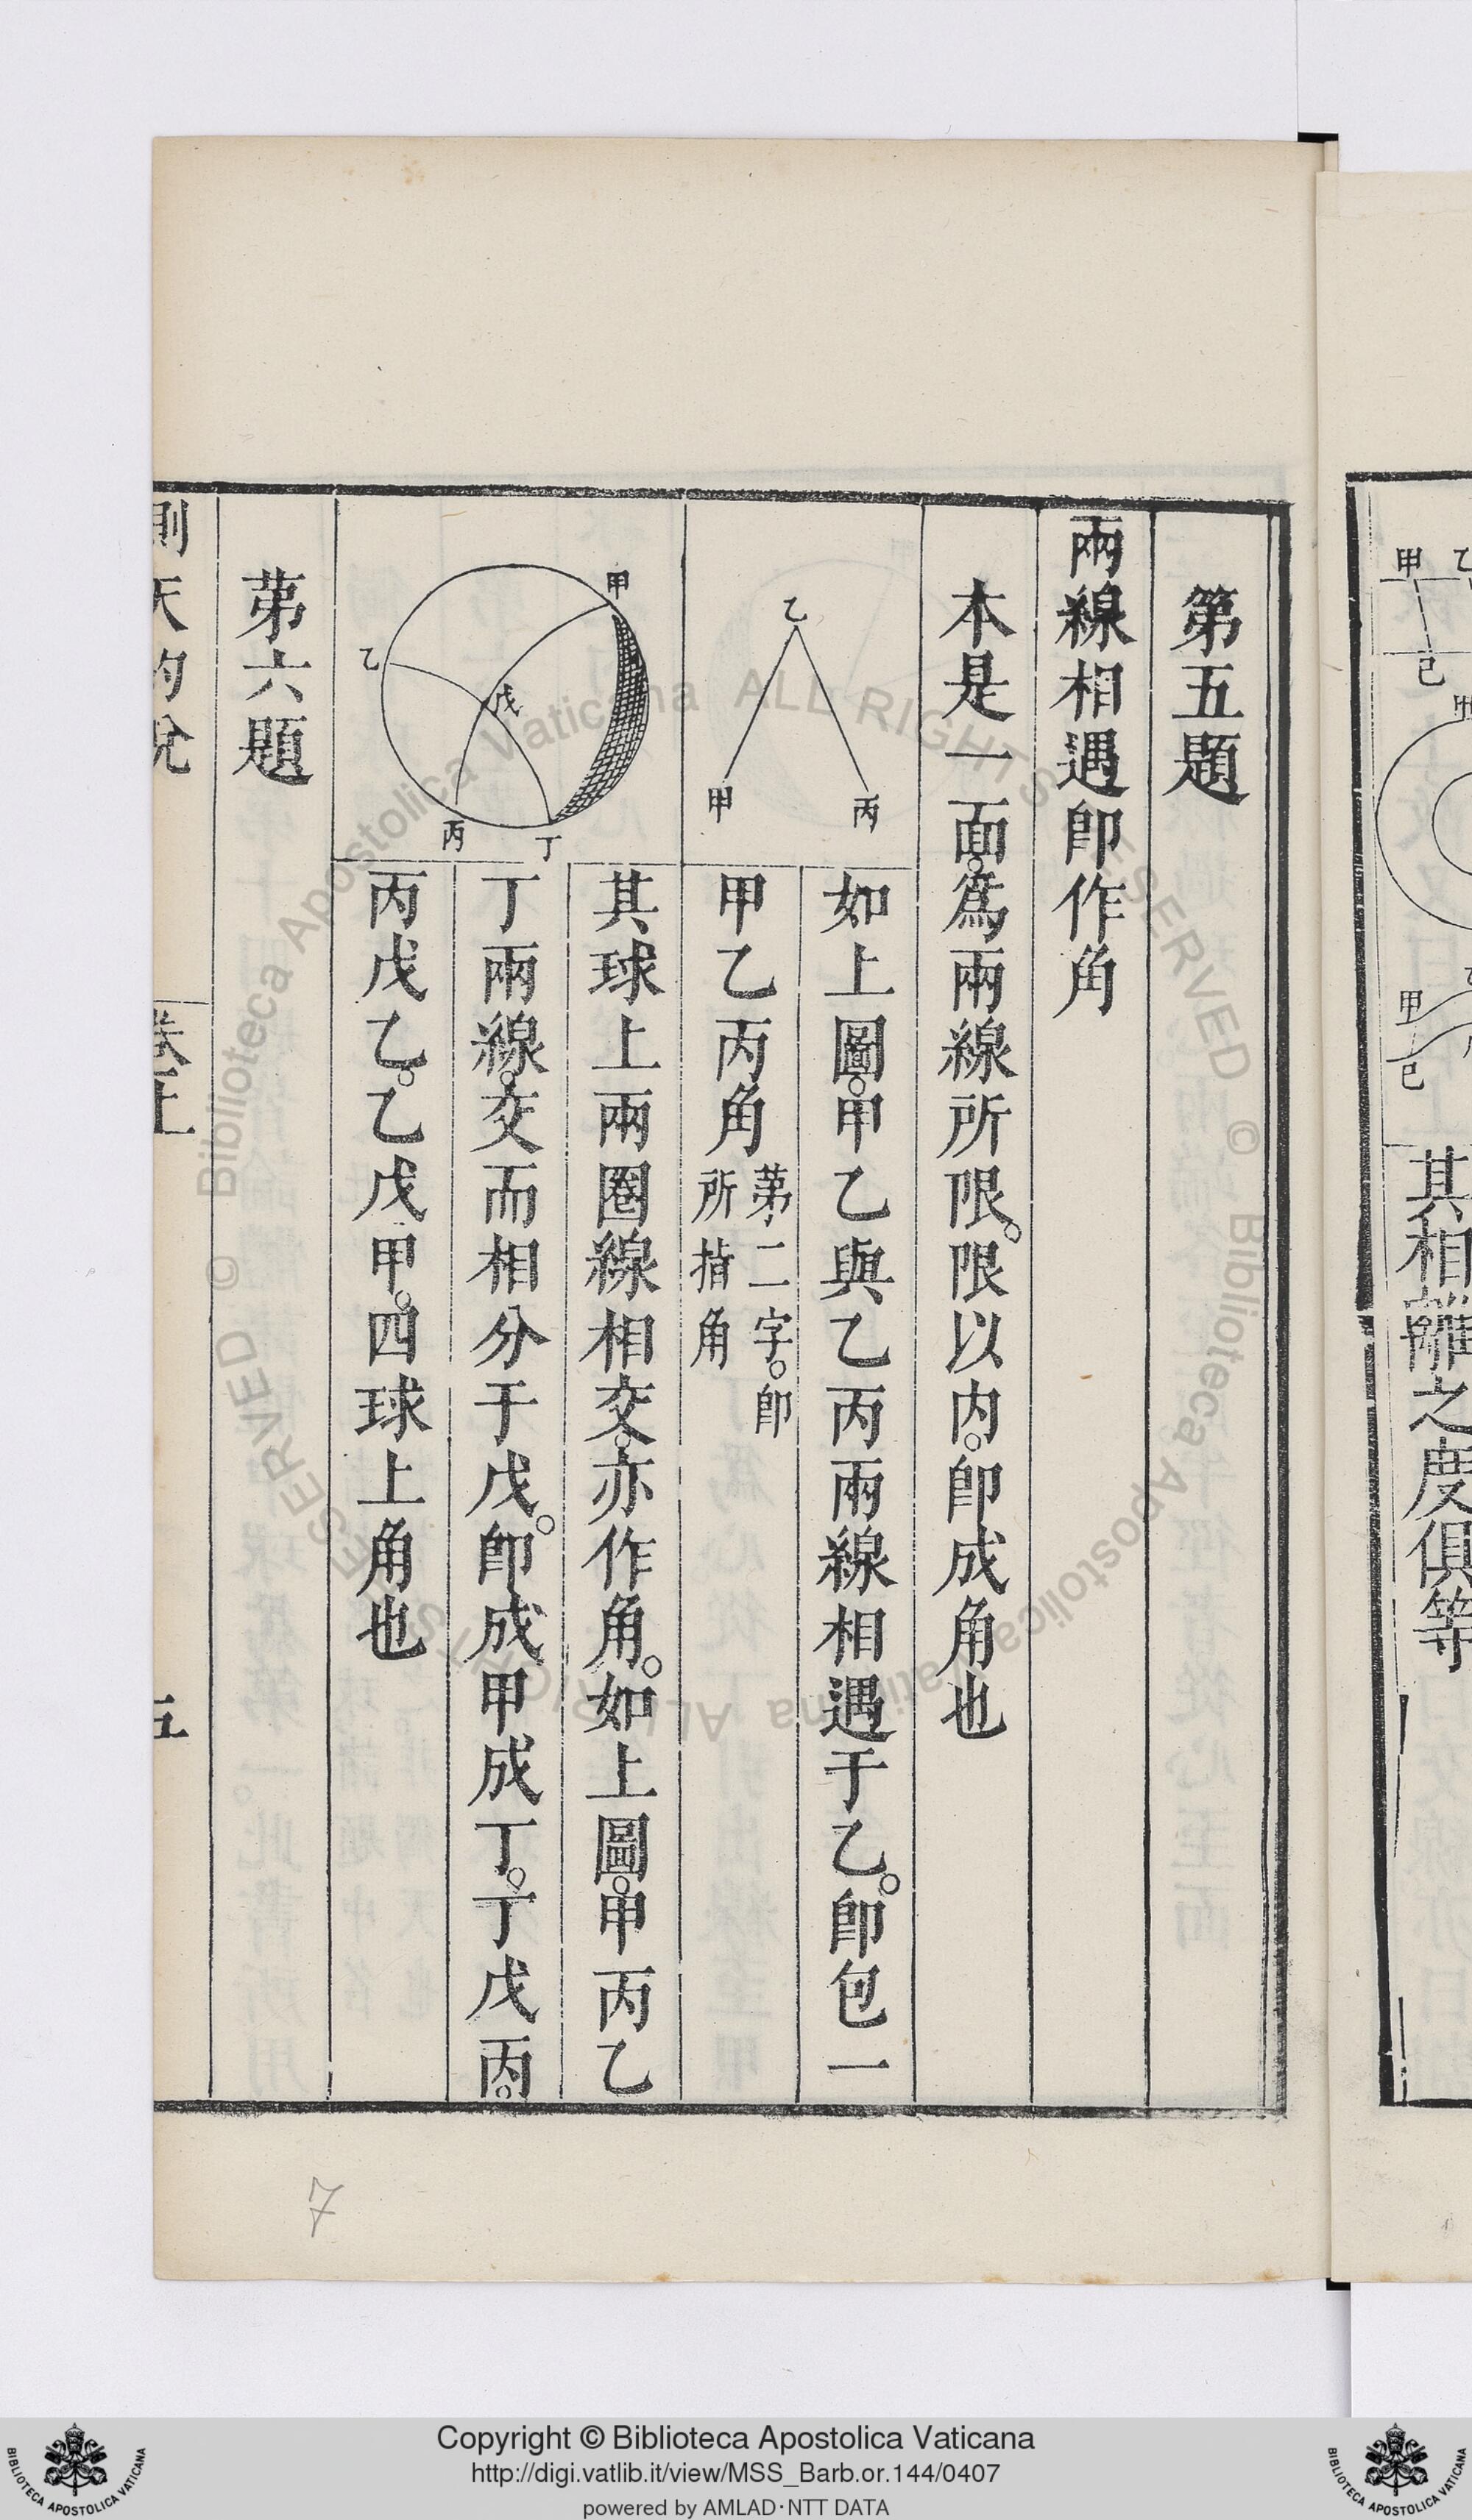 第五題
兩線相遇卽作角
本是一面。爲兩線所限。限以内。卽成角也
乙
甲
丙
如上圖。甲乙與乙丙兩線相遇于乙。卽包一
甲乙丙角
第二字。卽
所指角
甲
乙
戊
丙
丁
其球上兩圈線相交。亦作角。如上圖。甲丙乙
丁兩線。交而相分于戊。卽成甲戊丁。丁戊丙。
丙戊乙。乙戊甲。四球上角也
第六題
測天約說
卷上
五
甲
乙
己
甲
甲
己
其相離之度俱等
7
© Biblioteca Apostolica Vaticana ALL RIGHTS RESERVED © Biblioteca Apostolica Vaticana ALL RIGHTS RESERVED
Copyright © Biblioteca Apostolica Vaticana
http://digi.vatlib.it/view/MSS_Barb.or.144/0407
powered by AMLAD·NTT DATA
BIBLIOTECA APOSTOLICA VATICANA
BIBLIOTECA APOSTOLICA VATICANA